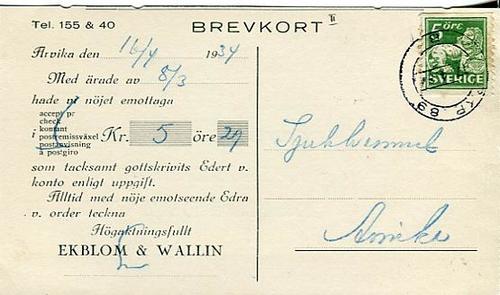 Tel. 155 & 40
BREVKORT
5 ÖRE
SVERIGE
Arvika den 16/4 1934
Med ärade av 8/3
hade vi nöjet emottaga
accept pr
check
kontant
postremissväxel
postanvisning
à postgiro
Kr. 5 öre 29
som tacksamt gottskrivits Edert v.
konto enligt uppgift.
Alltid med nöje emotseende Edra
v. order teckna
Högaktningsfullt
EKBLOM & WALLIN